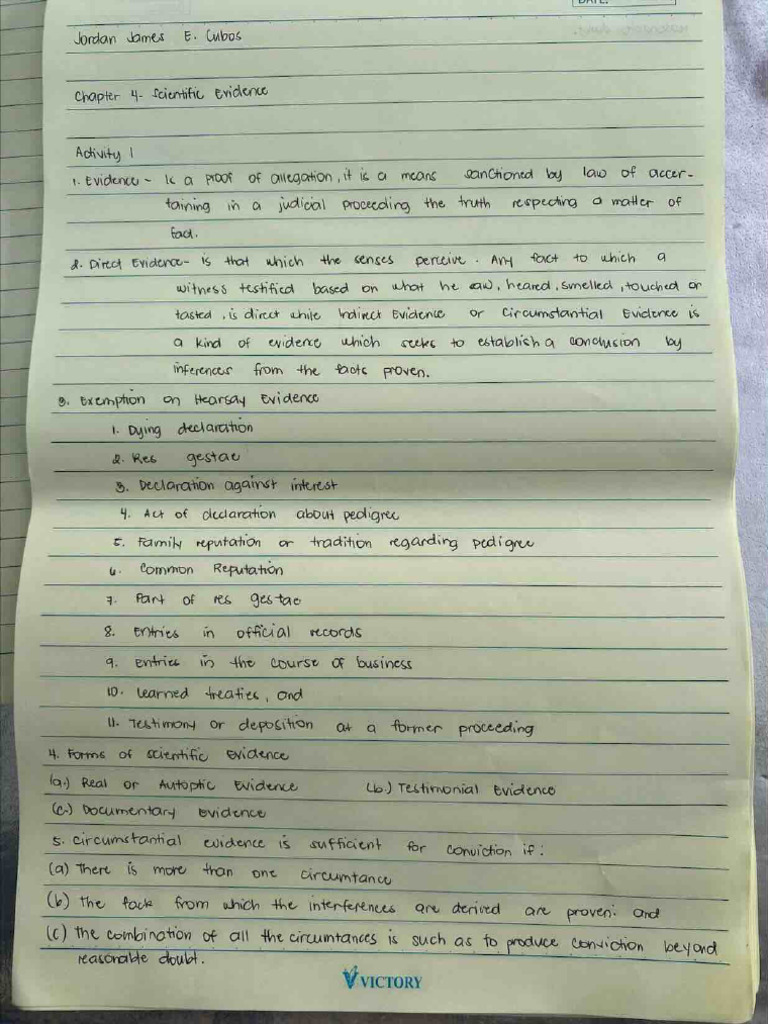 DATE:
Jordan James E. Cubos
Chapter 4- Scientific Evidence
Activity 1
1. Evidence - Is a proof of allegation, it is a means sanctioned by law of accer-
taining in a judicial proceeding the truth respecting a matter of
fact.
2. Direct Evidence- is that which the senses perceive. Any fact to which a
witness testified based on what he saw, heared, smelled, touched or
tasted, is direct while Indirect Evidence or Circumstantial Evidence is
a kind of evidence which seeks to establish a conclusion by
inferences from the facts proven.
3. Exemption on Hearsay Evidence
1. Dying declaration
2. Res gestae
3. Declaration against interest
4. Act of declaration about pedigree
5. Family reputation or tradition regarding pedigree
6. Common Reputation
7. Part of res gestae
8. Entries in official records
9. Entries in the course of business
10. Learned treaties, and
11. Testimony or deposition at a former proceeding
4. Forms of scientific evidence
(a.) Real or Autoptic Evidence (b.) Testimonial Evidence
(c.) Documentary evidence
5. Circumstantial evidence is sufficient for conviction if:
(a) There is more than one circumtance
(b) the fack from which the interferences are derived are proven: and
(c) the combination of all the circumtances is such as to produce conviction beyond
reasonable doubt.
VICTORY